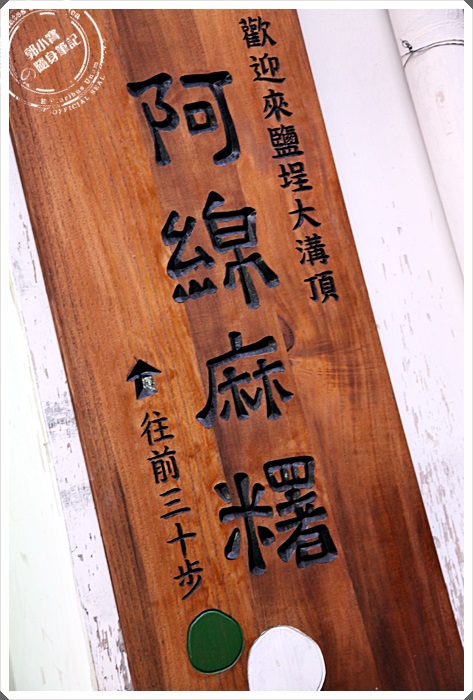 歡迎來鹽埕大溝頂
阿綿麻糬
往前三十步
郭小寶
の隨身筆記
OFFICIAL SEAL